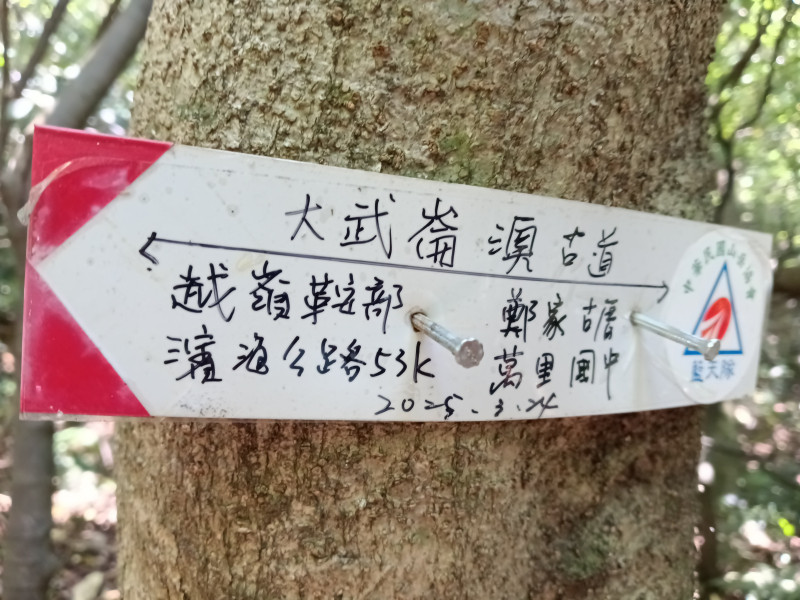 大武崙澳古道
越嶺鞍部
濱海公路53K
鄭家古厝
萬里國中
2025.3.24
中華民國山岳協會
藍天隊